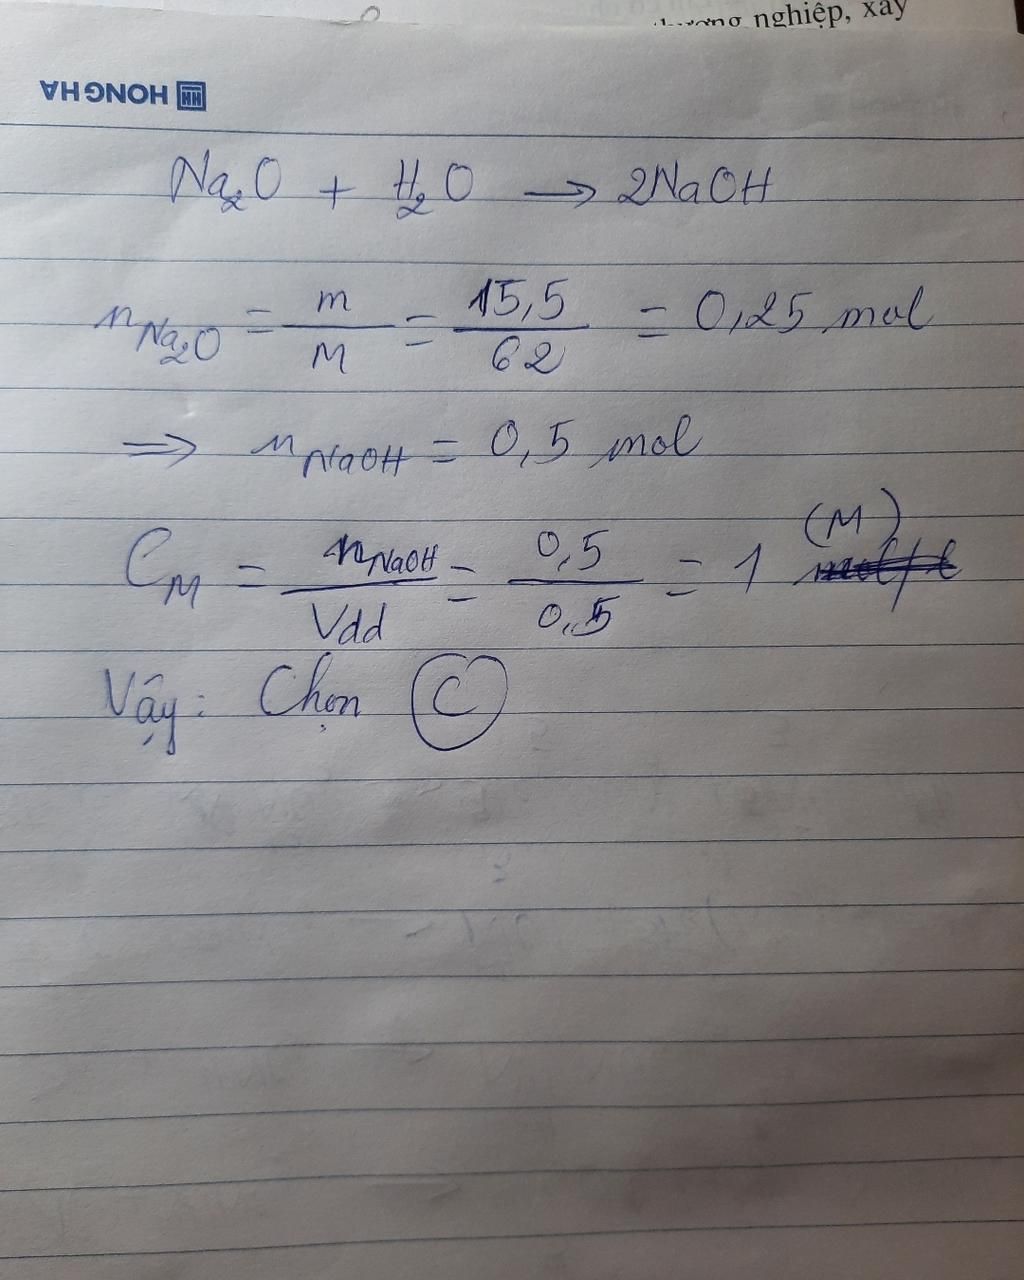 nghiệp, xây
HONG HA
Na₂O + H₂O → 2NaOH
n_Na₂O = m/M = 15,5/62 = 0,25 mol
⇒ n_NaOH = 0,5 mol
C_M = n_NaOH/Vdd = 0,5/0,5 = 1 (M)
Vậy: Chọn C